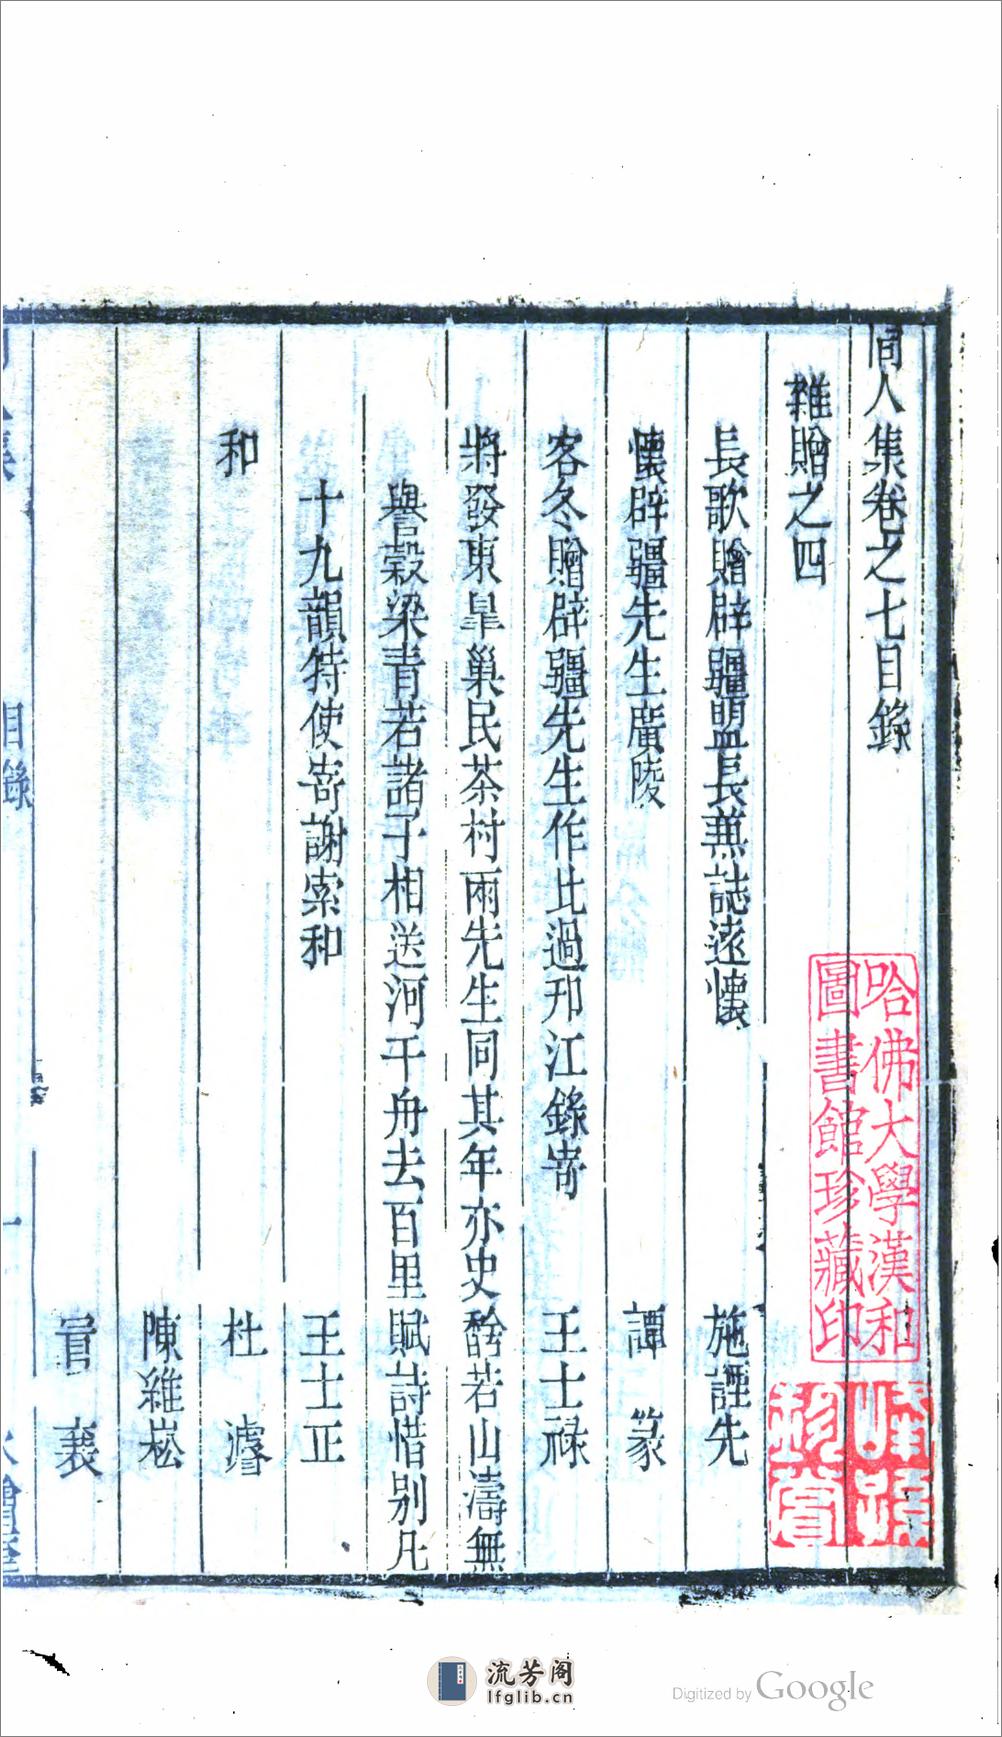 同人集卷之七目錄
雜贈之四
長歌贈辟疆盟長蕪誌遠懷 施諲先
懷辟疆先生廣陵 譚 篆
客冬贈辟疆先生作比過邗江錄寄 王士祿
將發東皐巢民茶村兩先生同其年亦史齡若山濤無
譽穀梁青若諸子相送河干舟去百里賦詩惜別凡
十九韻特使寄謝索和 王士正
和 杜 濬
陳維崧
冒 襄
目錄
一
水繪庵
哈佛大學漢和
圖書館珍藏印
流芳阁
lfglib.cn
Digitized by Google